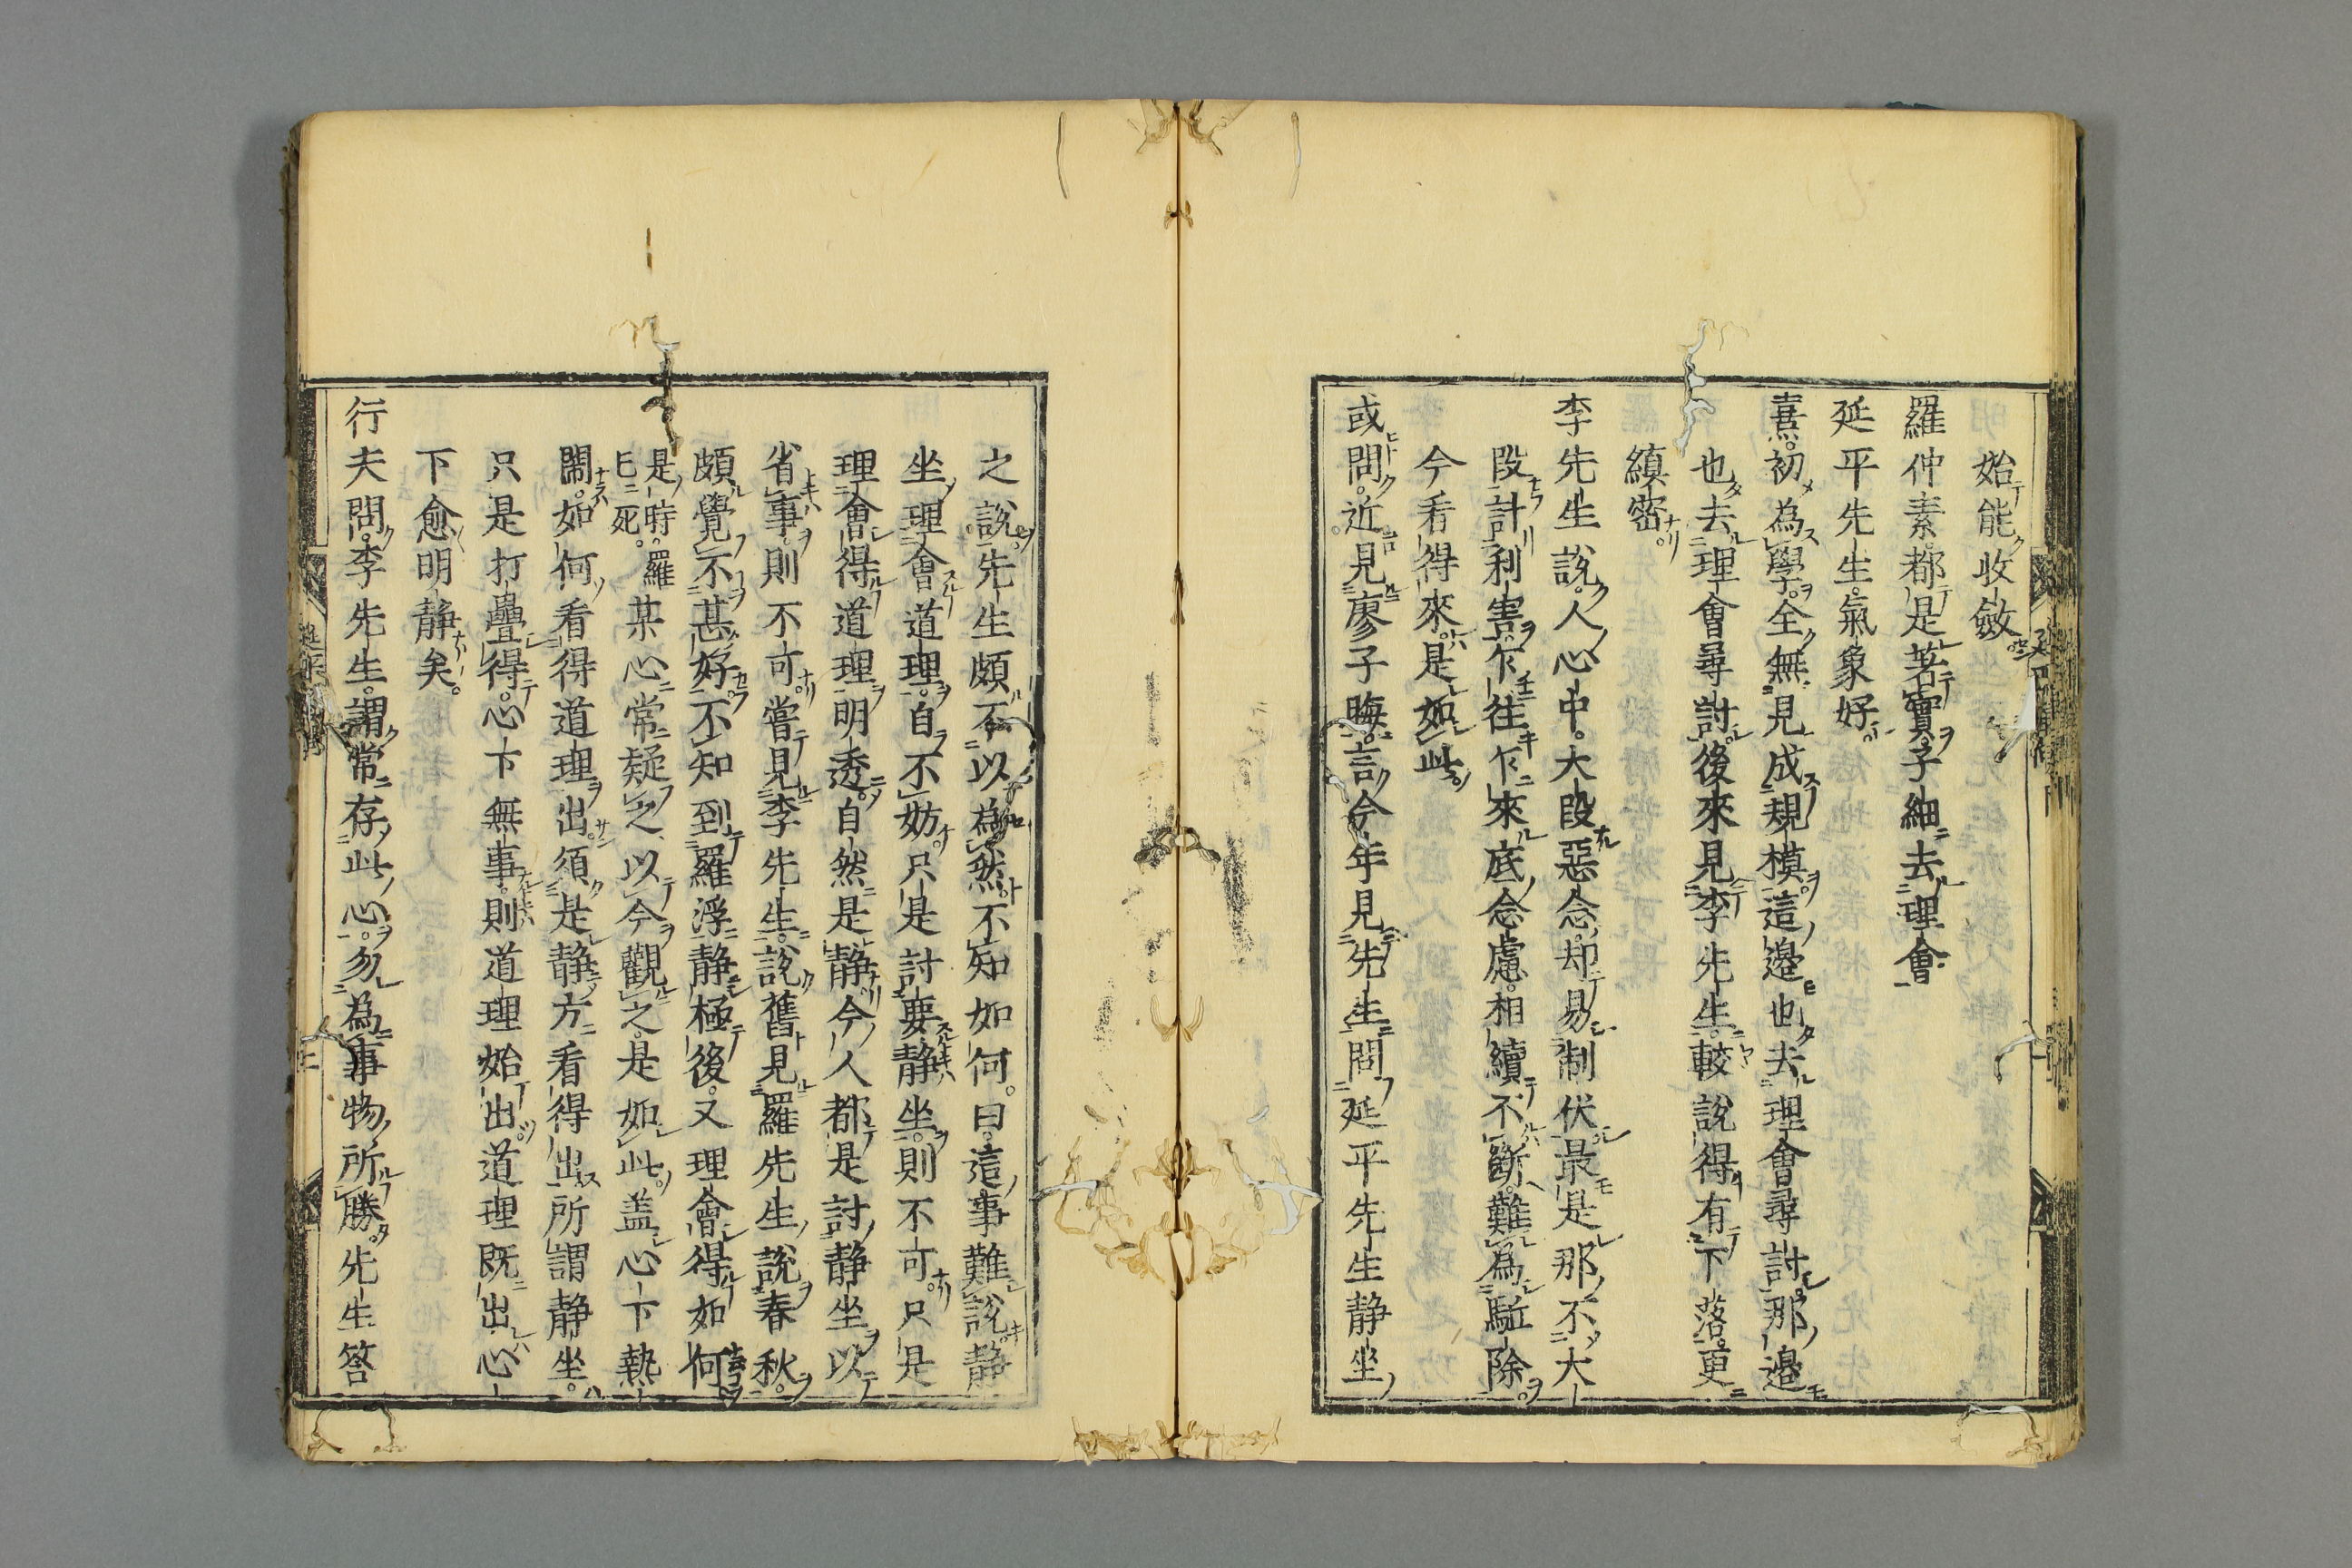 始能收斂
羅仲素都是著實子細去理會
延平先生氣象好
熹初為學全無見成規模這邊也去理會尋討那邊
也去理會尋討後來見李先生較說得有下落更
縝密
李先生說人心中大段惡念却易制伏最是那不大
段計利害乍往乍來底念慮相續不斷難為驅除
今看得來是如此
或問近見廖子晦言今年見先生問延平先生静坐
之說先生頗不以為然不知如何曰這事難說静
坐理會道理自不妨只是討要静坐則不可只是
理會得道理明透自然是静今人都是討静坐以
省事則不可嘗見李先生說舊見羅先生說春秋
頗覺不甚好不知到羅浮静極後又理會得如何
是時羅
已死
某心常疑之以今觀之是如此盖心下熱
閙如何看得道理出須是静方看得出所謂静坐
只是打疊得心下無事則道理始出道理既出心
下愈明静矣
行夫問李先生謂常存此心勿為事物所勝先生答